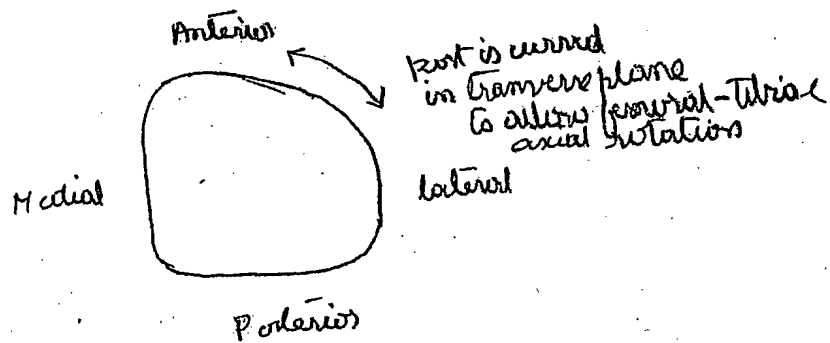 Anterior
Post is curved
in Transverse plane
to allow femoral-Tibial
axial rotation
Medial
lateral
Posterior